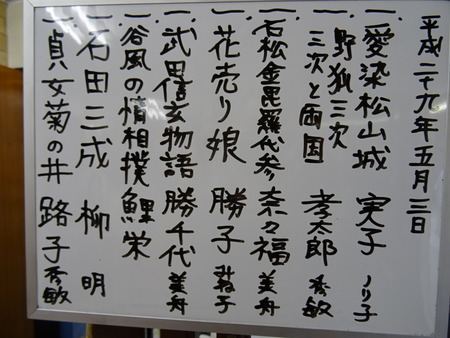 平成二十九年五月三日
一、愛染松山城 実子 ノリ子
一、野狐三次
三次と両国 孝太郎 秀敏
一、石松金毘羅代参 奈々福 美舟
一、花売り娘 勝子 みね子
一、武田信玄物語 勝千代 美舟
一、谷風の情相撲 鯉栄
一、石田三成 柳 明
一、貞女菊の井 路子 秀敏